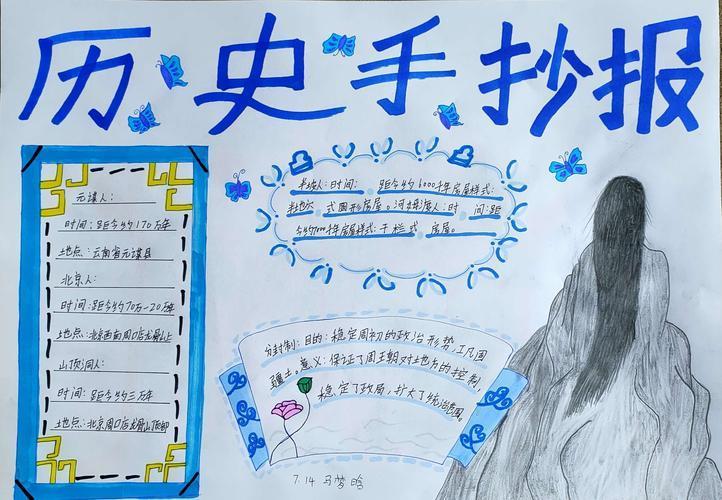 历史手抄报
元谋人:
时间:距今约170万年
地点:云南省元谋县
北京人:
时间:距今约70万-20万年
地点:北京西南周口店龙骨山上
山顶洞人:
时间:距今约三万年
地点:北京周口店龙骨山顶部
半坡人:时间:距今约6000千年房屋样式:
半地穴式圆形房屋。河姆渡人:时间:距
今约7000千年房屋样式:干栏式房屋。
分封制:目的:稳定周初的政治形势,巩固
疆土。意义:保证了周王朝对地方的控制,
稳定了政局,扩大了统治范围。
7.14 马梦晗